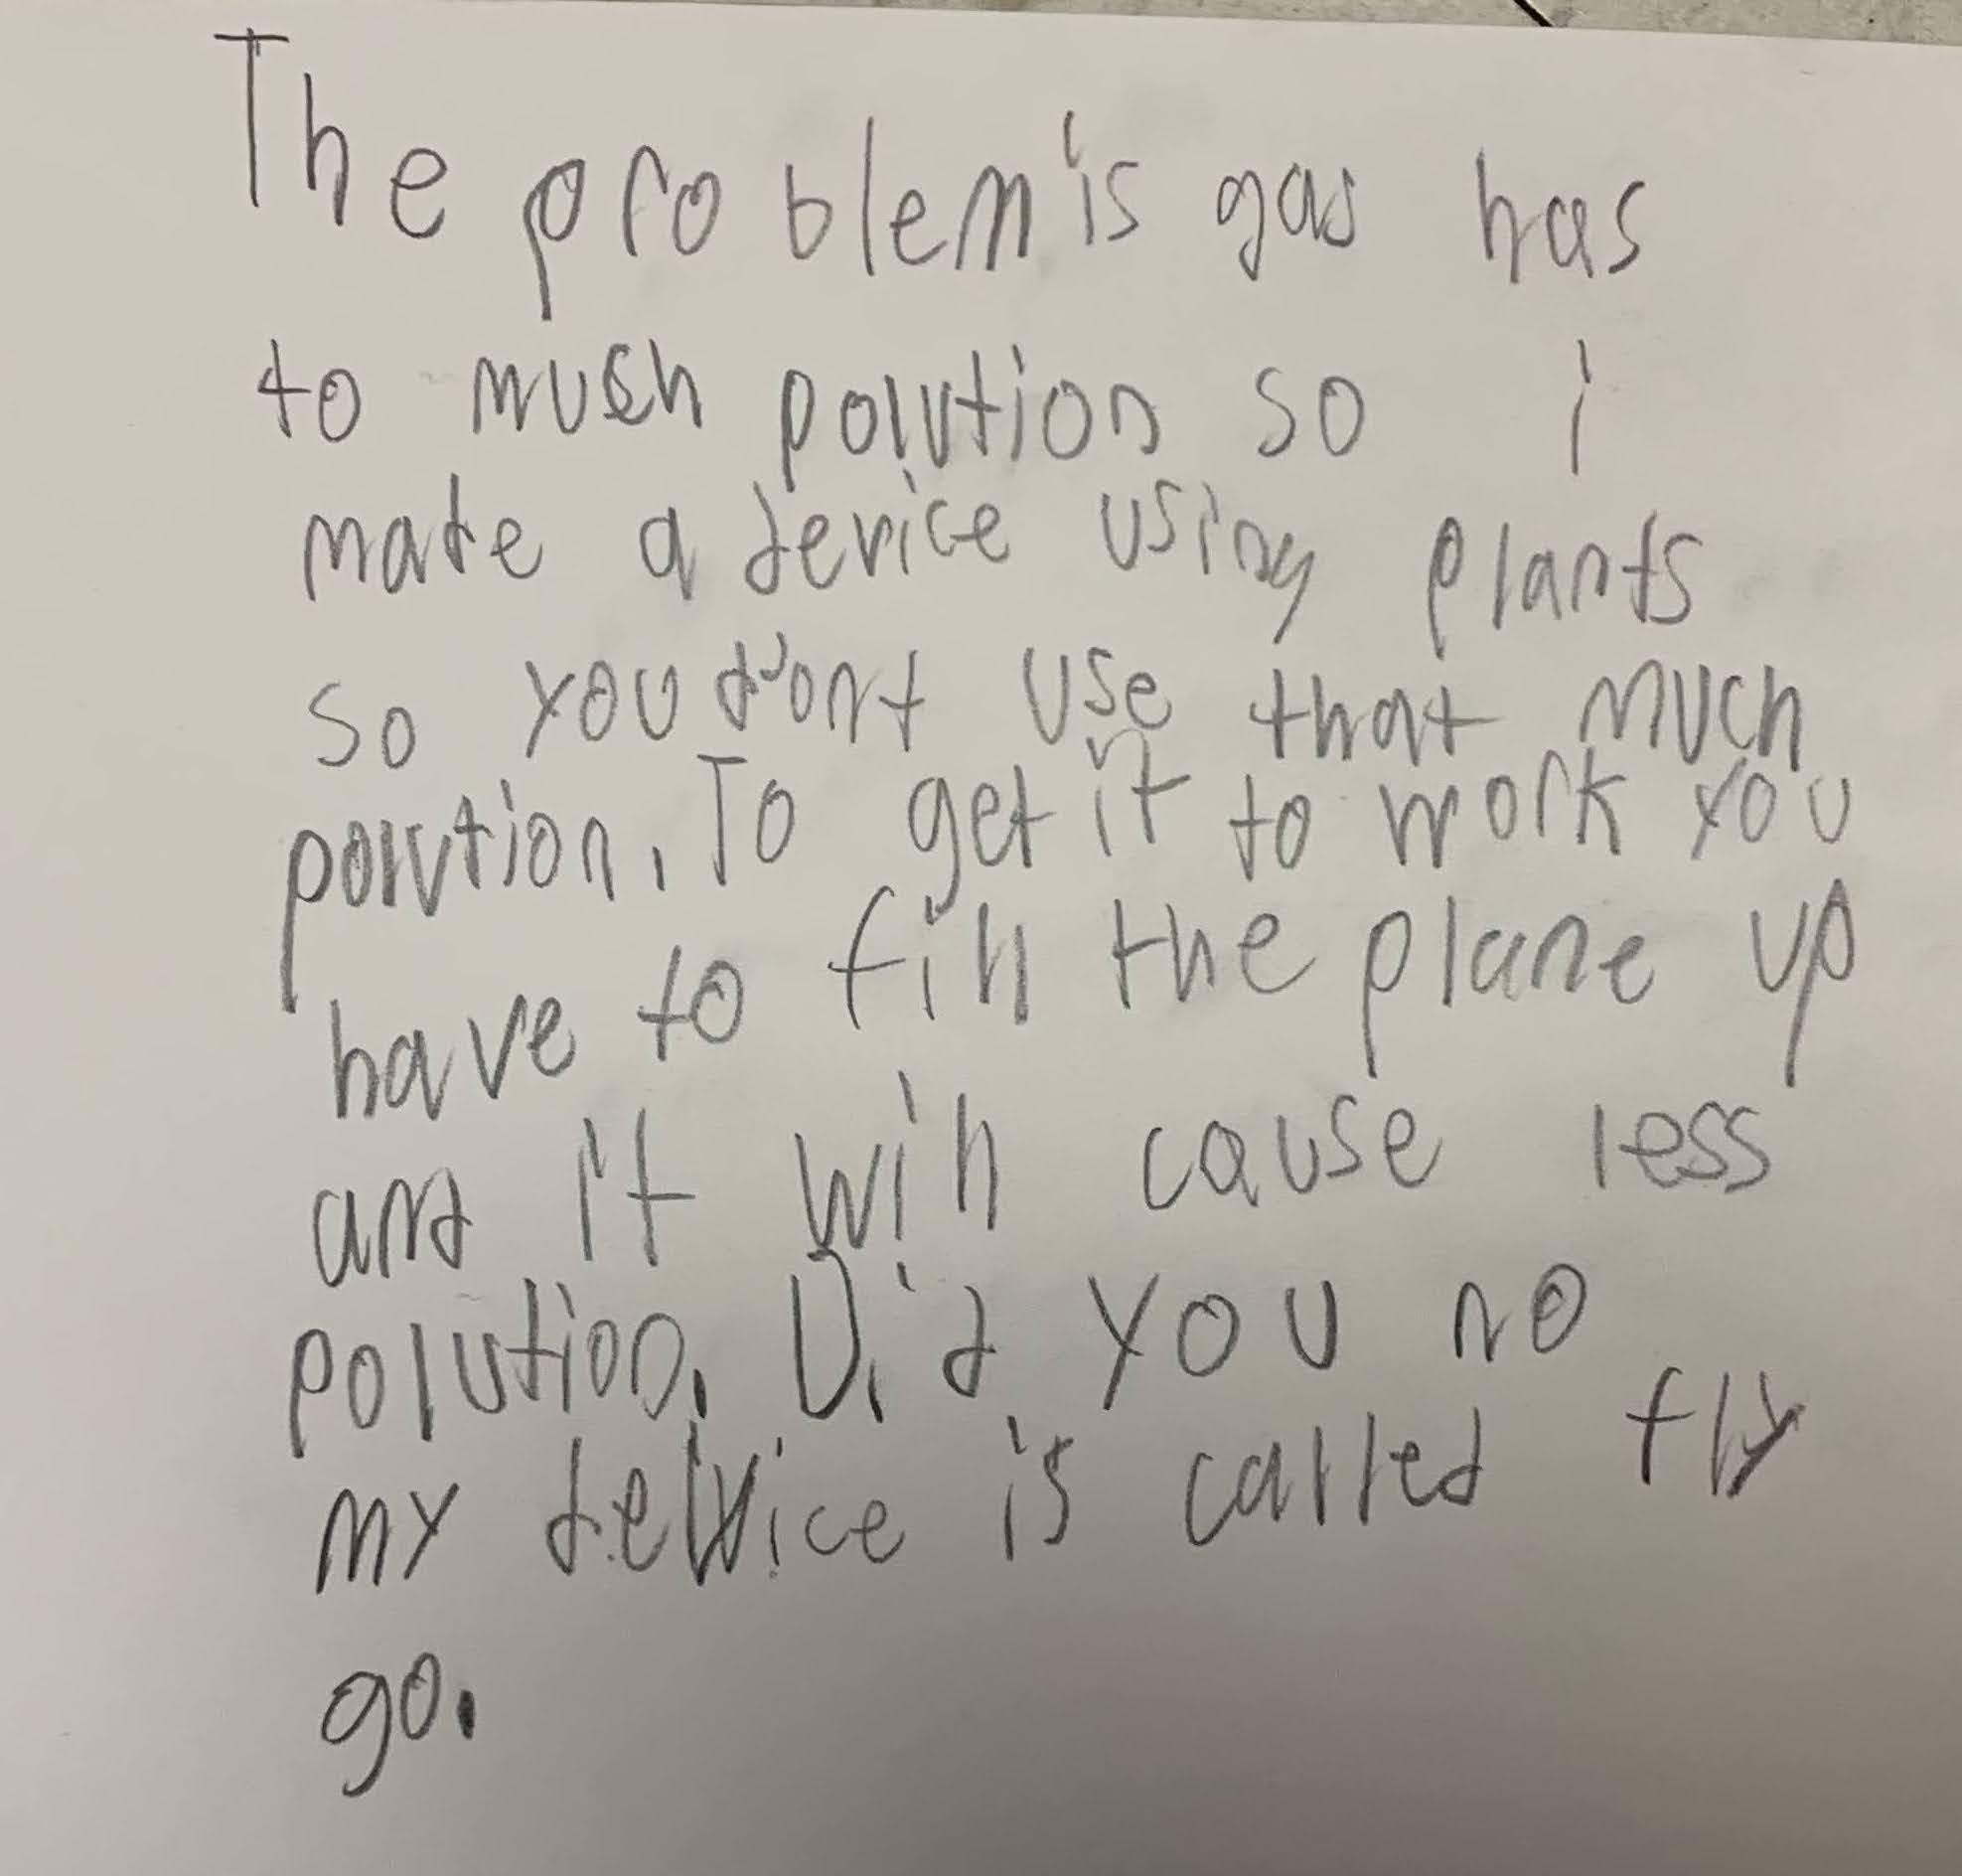 The problem is gas has
to much polution so i
made a device using plants
so you don't use that much
polution. To get it to work you
have to fill the plane up
and it will cause less
polution. Did you no
my device is called fly
go.